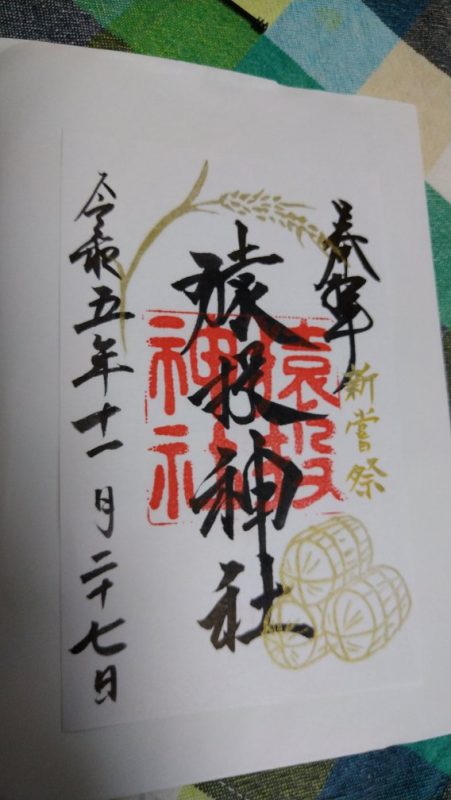 奉拝
新嘗祭
猿投神社
猿投神社
令和五年十一月二十七日